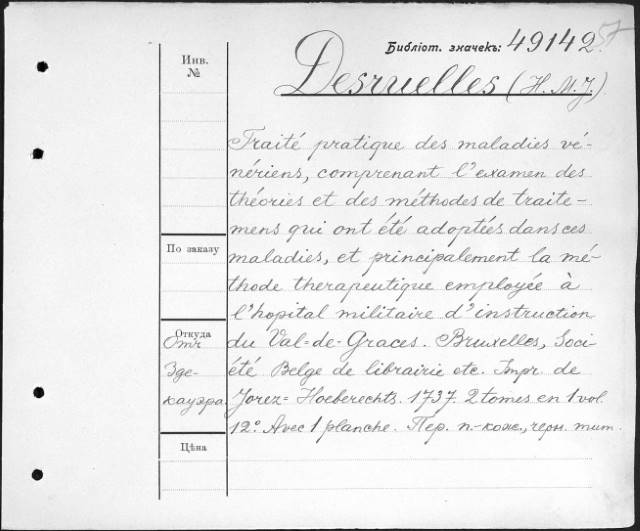 Библіот. значекъ: 49142
Инв. №
Desruelles (H. M. J.)
Traité pratique des maladies vé-
nériens, comprenant l'examen des
théories et des méthodes de traite-
mens qui ont été adoptées dans ces
По заказу
maladies, et principalement la mé-
thode therapeutique employée à
l'hopital militaire d'instruction
Откуда
Отъ Зде-
кауэра.
du Val=de-Graces. Bruxelles, Soci-
été Belge de librairie etc. Impr. de
Jorez= Hoeberechts. 1737. 2 tomes en 1 vol.
12°. Avec 1 planche. Пер. п.-кож., черн. тит.
Цѣна